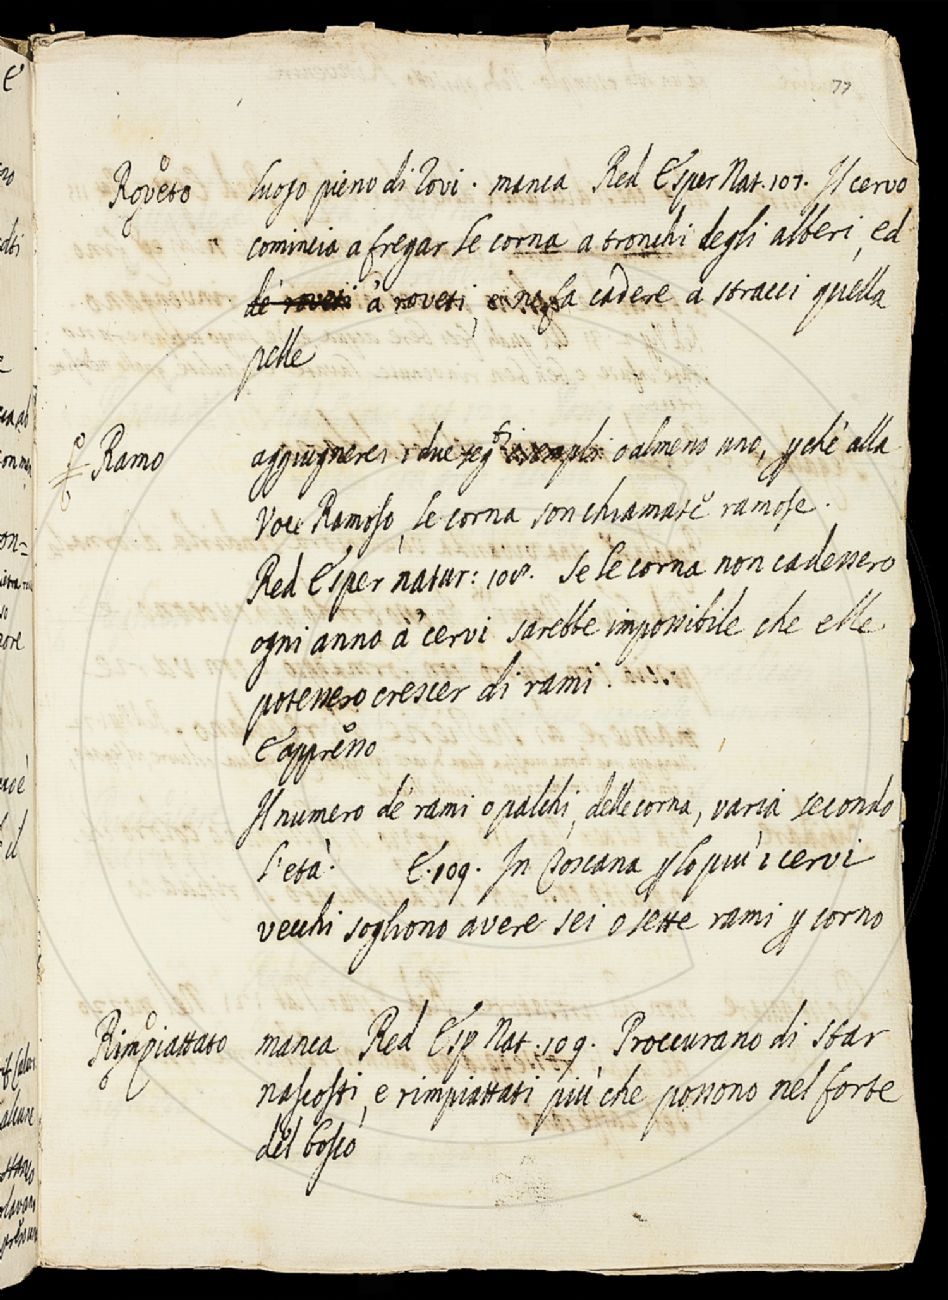 77
Roveto luogo pieno di Rovi. manca Red Esper Nat. 107. Il cervo
comincia a fregar le corna a tronchi degli alberi, ed
de' roveti à roveti, e ne fa cadere a stracci quella
pelle
Ramo aggiugnerei i due seg.ti esempli o almeno uno, p che alla
Voce Ramoso, le corna son chiamate ramose.
Red Esper natur: 108. Se le corna non cadessero
ogni anno à cervi sarebbe impossibile che elle
potessero crescer di rami.
E appresso
Il numero de' rami o palchi, delle corna, varia secondo
l'età. E. 109. In Toscana p lo più i cervi
vecchi sogliono avere sei o sette rami p corno
Rimpiattato manca Red Esp Nat. 109. Proccurano di star
nascosti, e rimpiattati più che possono nel forte
del bosco